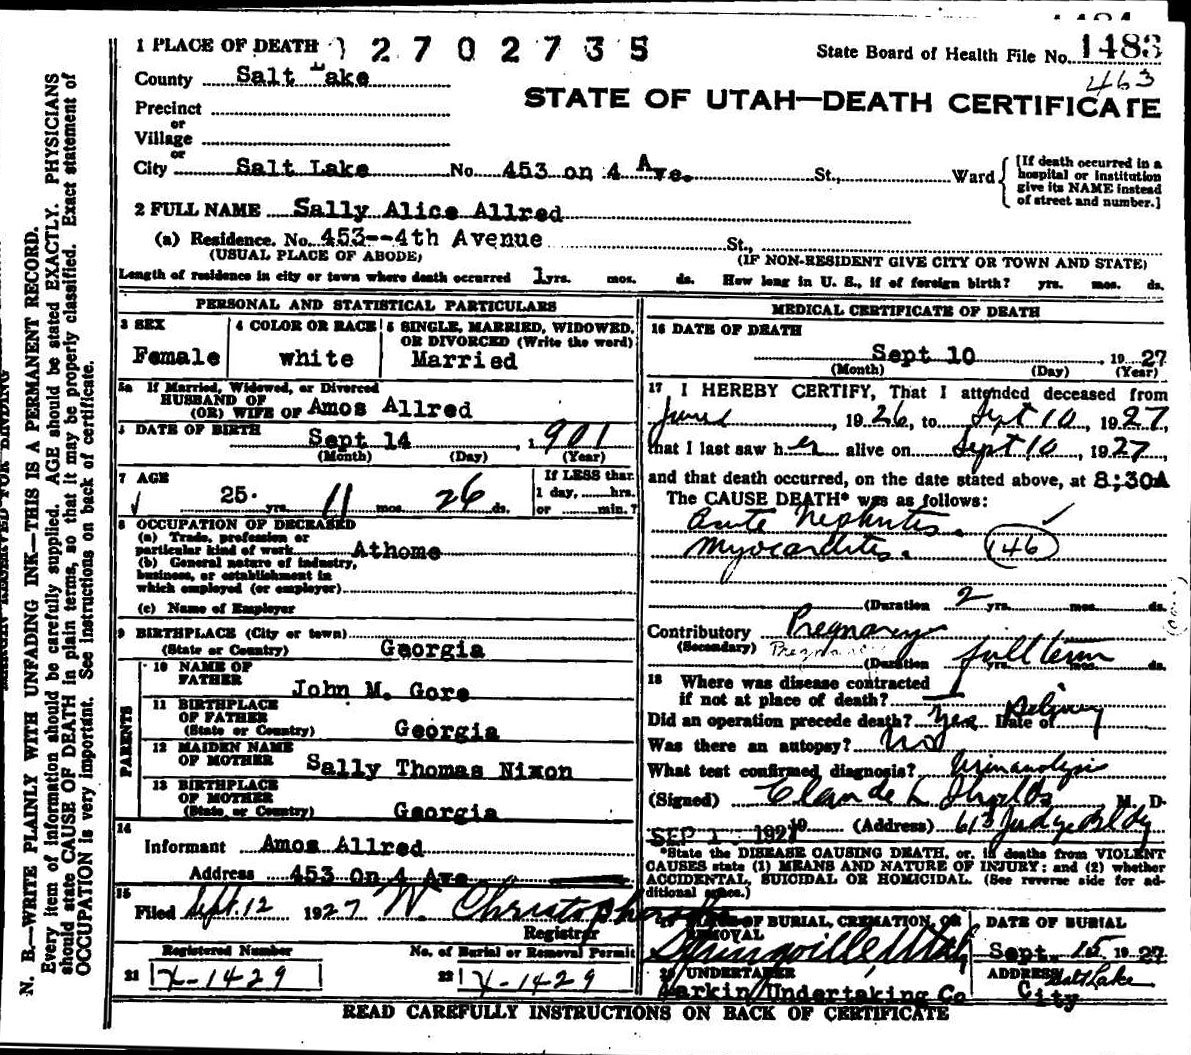 1 PLACE OF DEATH 2 7 0 2 7 3 5
State Board of Health File No. 1483
463
County Salt Lake
STATE OF UTAH—DEATH CERTIFICATE
Precinct
or
Village
or
City Salt Lake No. 453 on 4 Ave. St., Ward
[If death occurred in a hospital or institution give its NAME instead of street and number.]
2 FULL NAME Sally Alice Allred
(a) Residence. No. 453--4th Avenue St.,
(USUAL PLACE OF ABODE) (IF NON-RESIDENT GIVE CITY OR TOWN AND STATE)
Length of residence in city or town where death occurred 1 yrs. mos. ds. How long in U. S., if of foreign birth? yrs. mos. ds.
PERSONAL AND STATISTICAL PARTICULARS
3 SEX
Female
4 COLOR OR RACE
white
5 SINGLE, MARRIED, WIDOWED,
OR DIVORCED (Write the word)
Married
5a If Married, Widowed, or Divorced
HUSBAND OF
(OR) WIFE OF Amos Allred
DATE OF BIRTH
Sept 14, 1901
(Month) (Day) (Year)
7 AGE
25 yrs. 11 mos. 26 ds.
If LESS than
1 day, hrs.
or min.?
8 OCCUPATION OF DECEASED
(a) Trade, profession or
particular kind of work Athome
(b) General nature of industry,
business, or establishment in
which employed (or employer)
(c) Name of Employer
9 BIRTHPLACE (City or town)
(State or Country) Georgia
PARENTS
10 NAME OF
FATHER
John M. Gore
11 BIRTHPLACE
OF FATHER
(State or Country) Georgia
12 MAIDEN NAME
OF MOTHER Sally Thomas Nixon
13 BIRTHPLACE
OF MOTHER
(State or Country) Georgia
14
Informant Amos Allred
Address 453 On 4 Ave
15
Filed Sept. 12 1927 W. Christopherson
Registrar
Registered Number
21 X-1429
No. of Burial or Removal Permit
22 X-1429
MEDICAL CERTIFICATE OF DEATH
16 DATE OF DEATH
Sept 10, 1927
(Month) (Day) (Year)
17 I HEREBY CERTIFY, That I attended deceased from
June 1, 1926, to Sept 10, 1927,
that I last saw her alive on Sept 10, 1927,
and that death occurred, on the date stated above, at 8;30A
The CAUSE DEATH* was as follows:
Acute Nephritis.
Myocarditis. 146
(Duration 2 yrs. mos. ds.
Contributory Pregnancy
(Secondary) Pregnancy
(Duration full term yrs. mos. ds.
18 Where was disease contracted
if not at place of death?
Did an operation precede death? Yes Date of Delivery
Was there an autopsy? No
What test confirmed diagnosis? Urinanolysis
(Signed) Claude L Shields M. D.
SEP 1 1927 19 (Address) 613 Judge Bldg
*State the DISEASE CAUSING DEATH, or, in deaths from VIOLENT
CAUSES state (1) MEANS AND NATURE OF INJURY: and (2) whether
ACCIDENTAL, SUICIDAL OR HOMICIDAL. (See reverse side for additional space.)
OF BURIAL, CREMATION, OR
REMOVAL
Springville Utah
DATE OF BURIAL
Sept. 15, 1927
20 UNDERTAKER
Larkin Undertaking Co
ADDRESS Salt Lake
City
READ CAREFULLY INSTRUCTIONS ON BACK OF CERTIFICATE
N. B.—WRITE PLAINLY WITH UNFADING INK—THIS IS A PERMANENT RECORD.
Every item of information should be carefully supplied. AGE should be stated EXACTLY. PHYSICIANS
should state CAUSE OF DEATH in plain terms, so that it may be properly classified. Exact statement of
OCCUPATION is very important. See instructions on back of certificate.